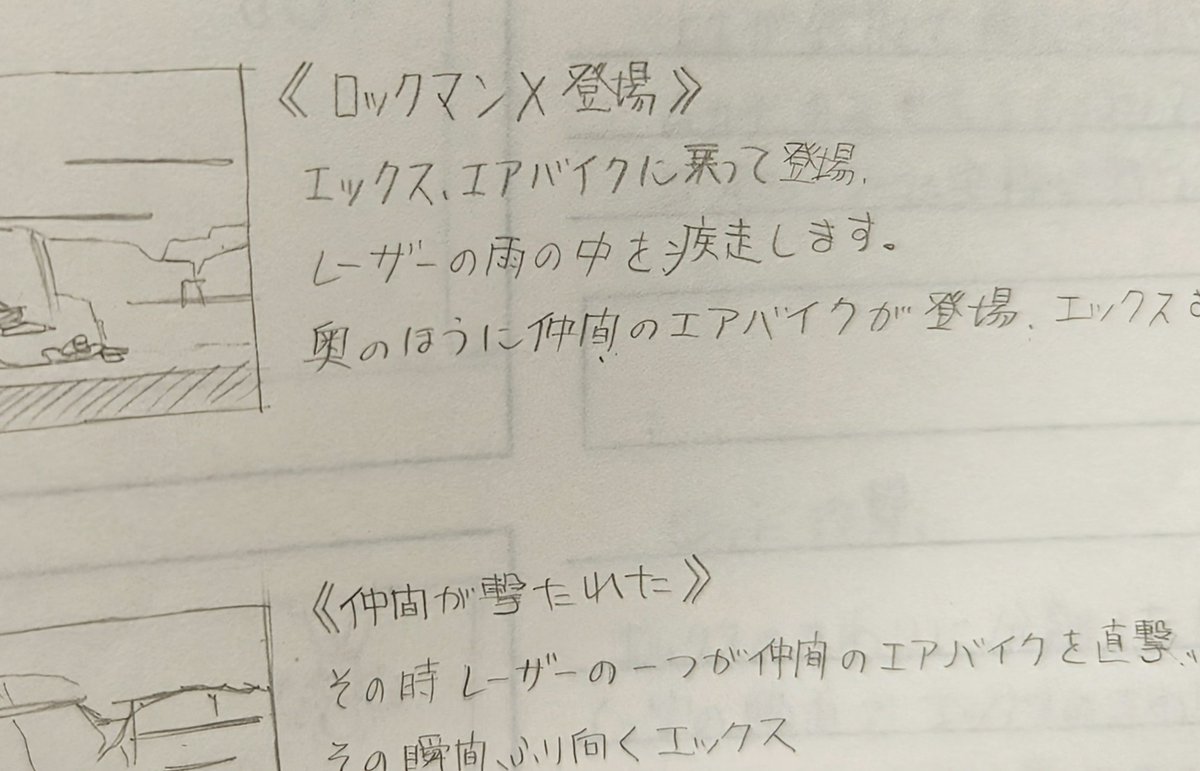 《ロックマンX登場》
エックス、エアバイクに乗って登場、
レーザーの雨の中を疾走します。
奥のほうに仲間のエアバイクが登場、エックス
《仲間が撃たれた》
その時レーザーの一つが仲間のエアバイクを直撃、
その瞬間、ふり向くエックス